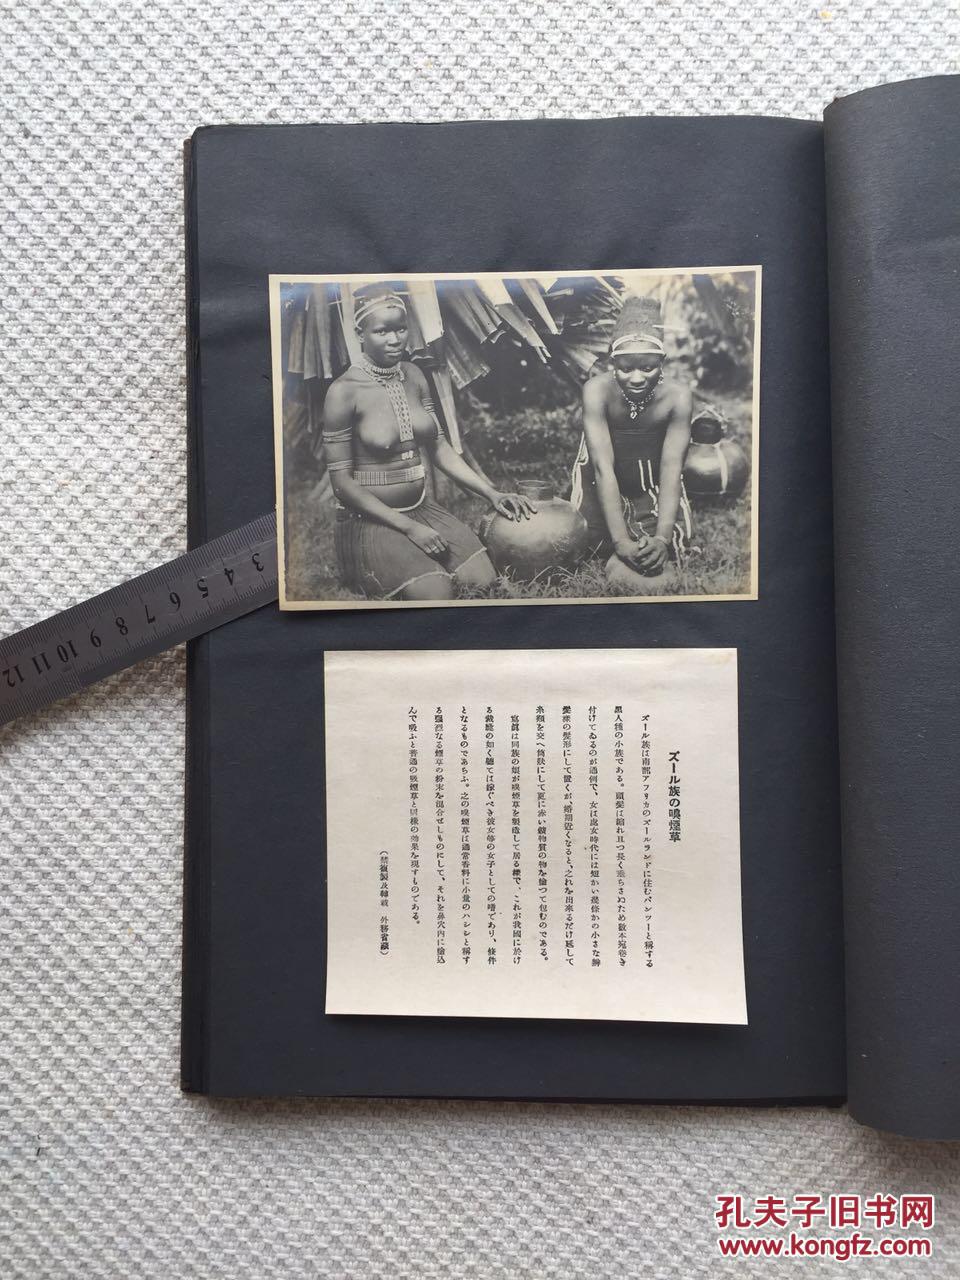 ズール族の嗅煙草
ズール族は南部アフリカのズールランドに住むバンツーと稱する
黒人種の小族である。頭髪は縮れ且つ長く垂ちさぬため數本宛巻き
付けてゐるのが通例で、女は處女時代には短かい幾條かの小さな
髪形にして置くが、婚期近くなると、之れを出來るだけ延して
糸類を交へ筒狀にして更に赤い鑛物質の物を塗つて包むのである。
寫眞は同族の娘が嗅煙草を製造して居る樣で、これが我國に於け
る裁縫の如く聽ては嫁ぐべき彼女等の女子としての嗜であり、條件
となるものであらふ。之の嗅煙草は通常香料に小量のハシシと稱す
る强烈なる煙草の粉末を混合せしものにして、それを鼻穴内に塗込
んで吸ふと普通の吸煙草と同樣の効果を現すものである。
(禁複製及轉載 外務省藏)
3 4 5 6 7 8 9 10 11 12
孔夫子旧书网
www.kongfz.com